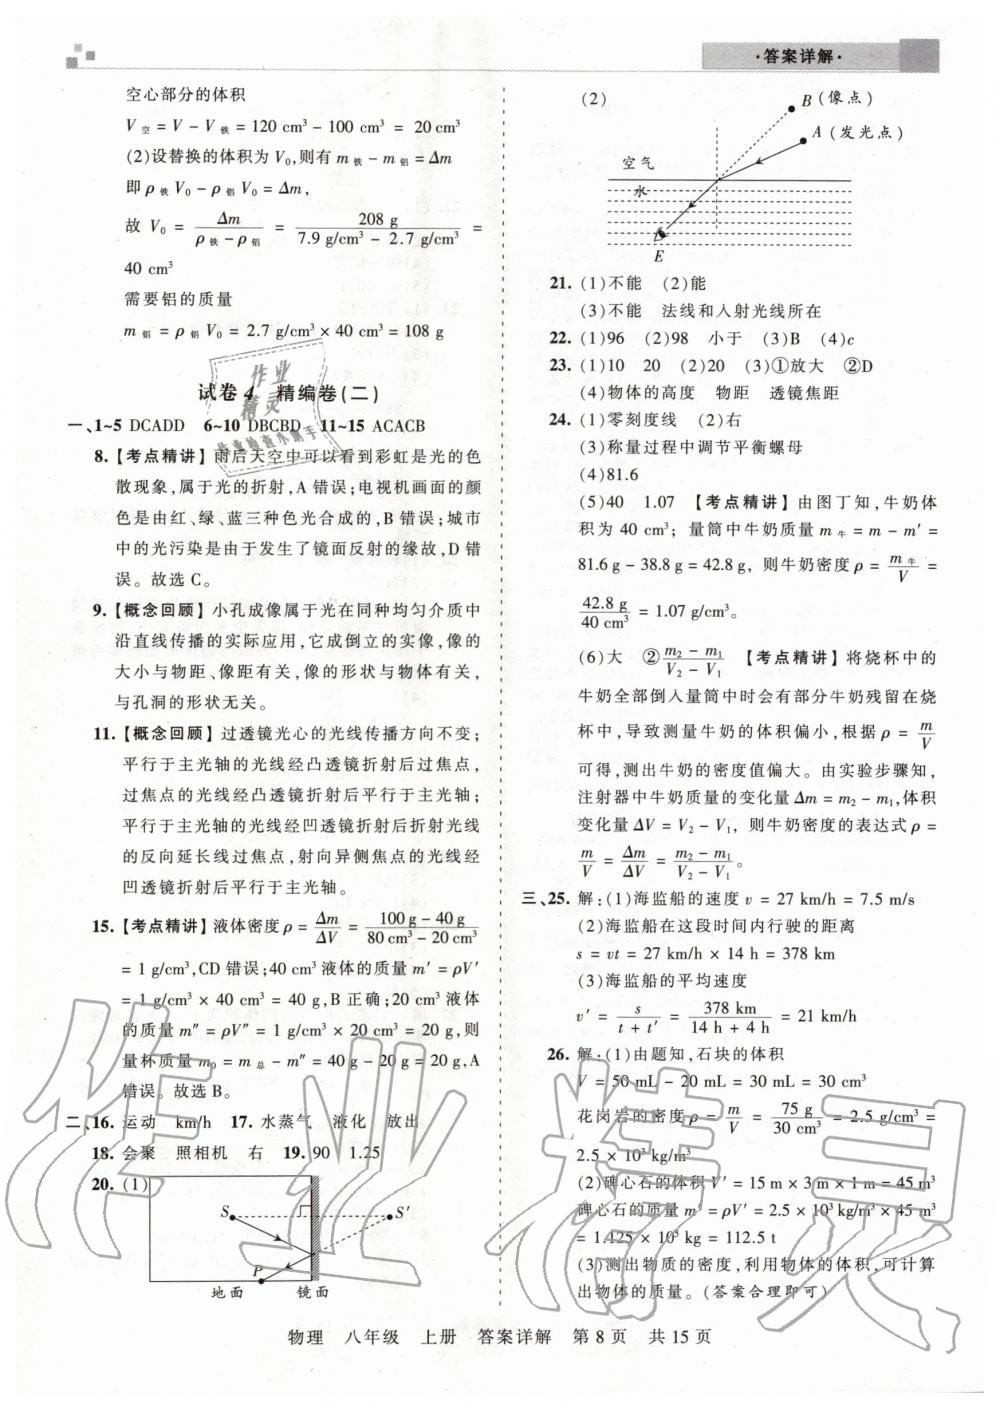 ·答案详解·
空心部分的体积
V空 = V - V铁 = 120 cm³ - 100 cm³ = 20 cm³
(2)设替换的体积为 V₀,则有 m铁 - m铝 = Δm
即 ρ铁 V₀ - ρ铝 V₀ = Δm,
故 V₀ = Δm/(ρ铁 - ρ铝) = 208 g/(7.9 g/cm³ - 2.7 g/cm³) =
40 cm³
需要铝的质量
m铝 = ρ铝 V₀ = 2.7 g/cm³ × 40 cm³ = 108 g
试卷 4 精编卷(二)
一、1~5 DCADD 6~10 DBCBD 11~15 ACACB
8.【考点精讲】雨后天空中可以看到彩虹是光的色
散现象,属于光的折射,A 错误;电视机画面的颜
色是由红、绿、蓝三种色光合成的,B 错误;城市
中的光污染是由于发生了镜面反射的缘故,D 错
误。故选 C。
9.【概念回顾】小孔成像属于光在同种均匀介质中
沿直线传播的实际应用,它成倒立的实像,像的
大小与物距、像距有关,像的形状与物体有关,
与孔洞的形状无关。
11.【概念回顾】过透镜光心的光线传播方向不变;
平行于主光轴的光线经凸透镜折射后过焦点,
过焦点的光线经凸透镜折射后平行于主光轴;
平行于主光轴的光线经凹透镜折射后折射光线
的反向延长线过焦点,射向异侧焦点的光线经
凹透镜折射后平行于主光轴。
15.【考点精讲】液体密度 ρ = Δm/ΔV = (100 g - 40 g)/(80 cm³ - 20 cm³)
= 1 g/cm³,CD 错误;40 cm³ 液体的质量 m′ = ρV′
= 1 g/cm³ × 40 cm³ = 40 g,B 正确;20 cm³ 液体
的质量 m″ = ρV″ = 1 g/cm³ × 20 cm³ = 20 g,则
量杯质量 m₀ = m总 - m″ = 40 g - 20 g = 20 g,A
错误。故选 B。
二、16. 运动 km/h 17. 水蒸气 液化 放出
18. 会聚 照相机 右 19. 90 1.25
20. (1)
S
S′
P
地面 镜面
(2)
B(像点)
A(发光点)
空气
水
E
21. (1)不能 (2)能
(3)不能 法线和入射光线所在
22. (1)96 (2)98 小于 (3)B (4)c
23. (1)10 20 (2)20 (3)①放大 ②D
(4)物体的高度 物距 透镜焦距
24. (1)零刻度线 (2)右
(3)称量过程中调节平衡螺母
(4)81.6
(5)40 1.07 【考点精讲】由图丁知,牛奶体
积为 40 cm³;量筒中牛奶质量 m牛 = m - m′ =
81.6 g - 38.8 g = 42.8 g,则牛奶密度 ρ = m牛/V =
42.8 g/40 cm³ = 1.07 g/cm³。
(6)大 ②(m₂ - m₁)/(V₂ - V₁) 【考点精讲】将烧杯中的
牛奶全部倒入量筒中时会有部分牛奶残留在烧
杯中,导致测量牛奶的体积偏小,根据 ρ = m/V
可得,测出牛奶的密度值偏大。由实验步骤知,
注射器中牛奶质量的变化量 Δm = m₂ - m₁,体积
变化量 ΔV = V₂ - V₁,则牛奶密度的表达式 ρ =
m/V = Δm/ΔV = (m₂ - m₁)/(V₂ - V₁)。
三、25. 解:(1)海监船的速度 v = 27 km/h = 7.5 m/s
(2)海监船在这段时间内行驶的距离
s = vt = 27 km/h × 14 h = 378 km
(3)海监船的平均速度
v′ = s/(t + t′) = 378 km/(14 h + 4 h) = 21 km/h
26. 解:(1)由题知,石块的体积
V = 50 mL - 20 mL = 30 mL = 30 cm³
花岗岩的密度 ρ = m/V = 75 g/30 cm³ = 2.5 g/cm³ =
2.5 × 10³ kg/m³
(2)碑心石的体积 V′ = 15 m × 3 m × 1 m = 45 m³
碑心石的质量 m′ = ρV′ = 2.5 × 10³ kg/m³ × 45 m³
= 1.125 × 10⁵ kg = 112.5 t
(3)测出物质的密度,利用物体的体积,可计算
出物体的质量。(答案合理即可)
物理 八年级 上册 答案详解 第 8 页 共 15 页
作业精灵